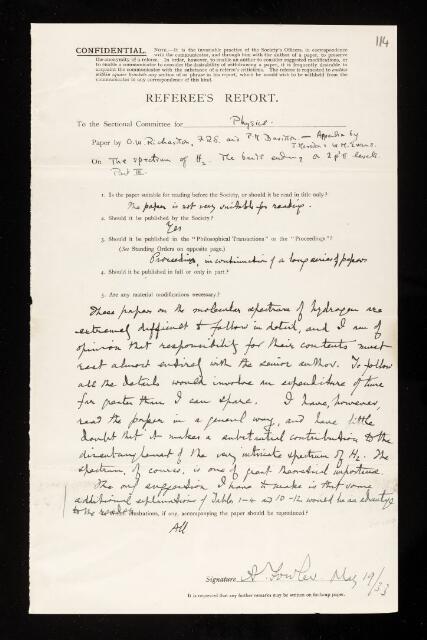 114
CONFIDENTIAL. NOTE.—It is the invariable practice of the Society's Officers, in correspondence
with the communicator, and through him with the author of a paper, to preserve
the anonymity of a referee. In order, however, to enable an author to consider suggested modifications, or
to enable a communicator to consider the desirability of withdrawing a paper, it is frequently desirable to
acquaint the communicator with the substance of a referee's criticisms. The referee is requested to enclose
within square brackets any section of or phrase in his report, which he would wish to be withheld from the
communicator in any correspondence of this kind.
REFEREE'S REPORT.
To the Sectional Committee for Physics.
Paper by O. W. Richardson, F.R.S. and P. M. Davidson — Appendix by
W. M. Evans.
On The spectrum of H2. The bands ending on 2p3Π levels.
Part III.
1. Is the paper suitable for reading before the Society, or should it be read in title only?
The paper is not very suitable for reading.
2. Should it be published by the Society?
Yes
3. Should it be published in the "Philosophical Transactions" or the "Proceedings"?
(See Standing Orders on opposite page.)
Proceedings, in continuation of a long series of papers
4. Should it be published in full or only in part?
5. Are any material modifications necessary?
These papers on the molecular spectrum of hydrogen are
extremely difficult to follow in detail, and I am of
opinion that responsibility for their contents must
rest almost entirely with the senior author. To follow
all the details would involve an expenditure of time
far greater than I can spare. I have, however,
read the paper in a general way, and have little
doubt that it makes a substantial contribution to the
disentanglement of the very intricate spectrum of H2. The
spectrum, of course, is one of great theoretical importance.
The only suggestion I have to make is that some
additional explanations of Tables 1-4 and 10-12 would be an advantage
to the reader.
illustrations, if any, accompanying the paper should be reproduced?
All
Signature A. Fowler May 19/33
It is requested that any further remarks may be written on foolscap paper.